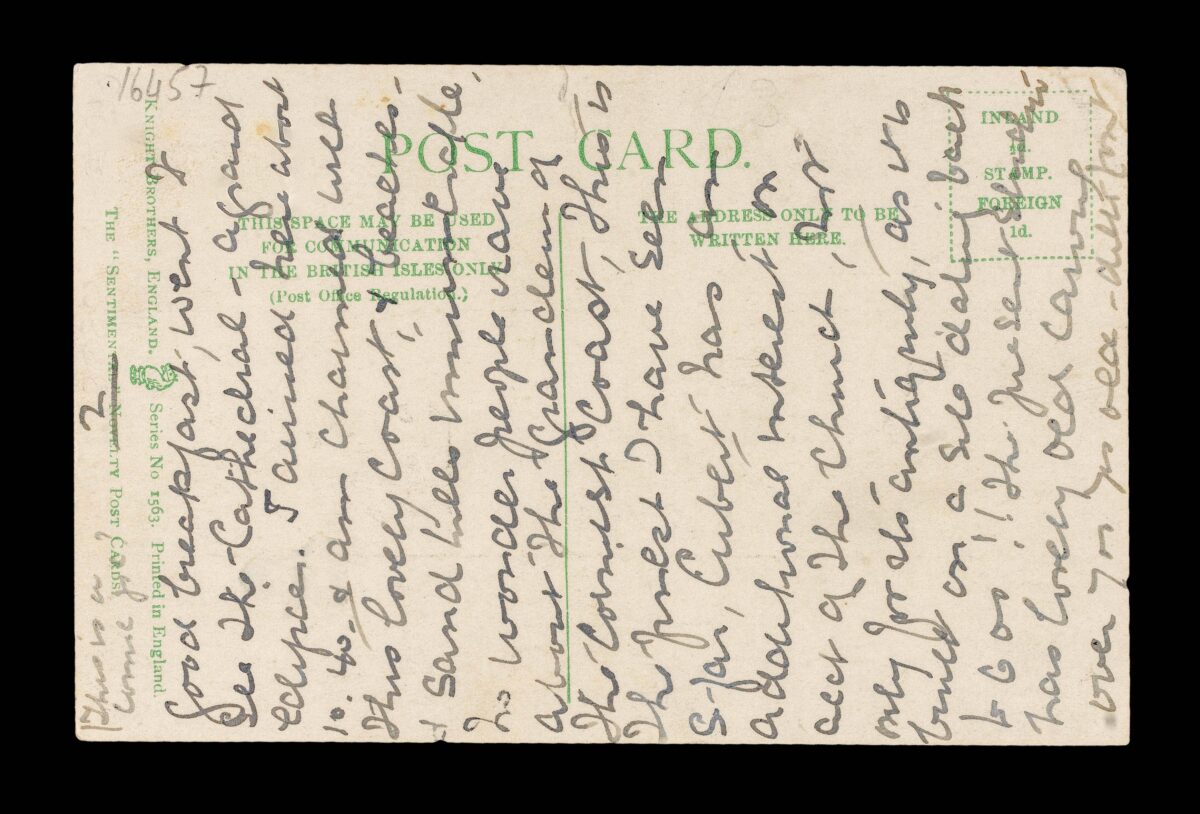 16457
POST CARD.
THIS SPACE MAY BE USED
FOR COMMUNICATION
IN THE BRITISH ISLES ONLY
(Post Office Regulation.)
THE ADDRESS ONLY TO BE
WRITTEN HERE.
INLAND
½d.
STAMP.
FOREIGN
1d.
KNIGHT BROTHERS, ENGLAND. Series No 1563. Printed in England.
THE "SENTIMENTAL" NOVELTY POST CARDS
2
This is a
good breakfast, went &
see the Cathedral - a grand
eclipse. I arrived here about
10.40 & am charmed with
this lovely coast, & beaches -
& sand hills innumerable,
no wonder people rave
about the Grandeur of
the Cornish Coast, this is
the finest I have seen
so far, Cubert has an
additional interest on
acct of the Church, not
only for its antiquity, as its
built on a site dating back
to 6 00 !! the present Church
has lovely old carving
over 700 yrs old -